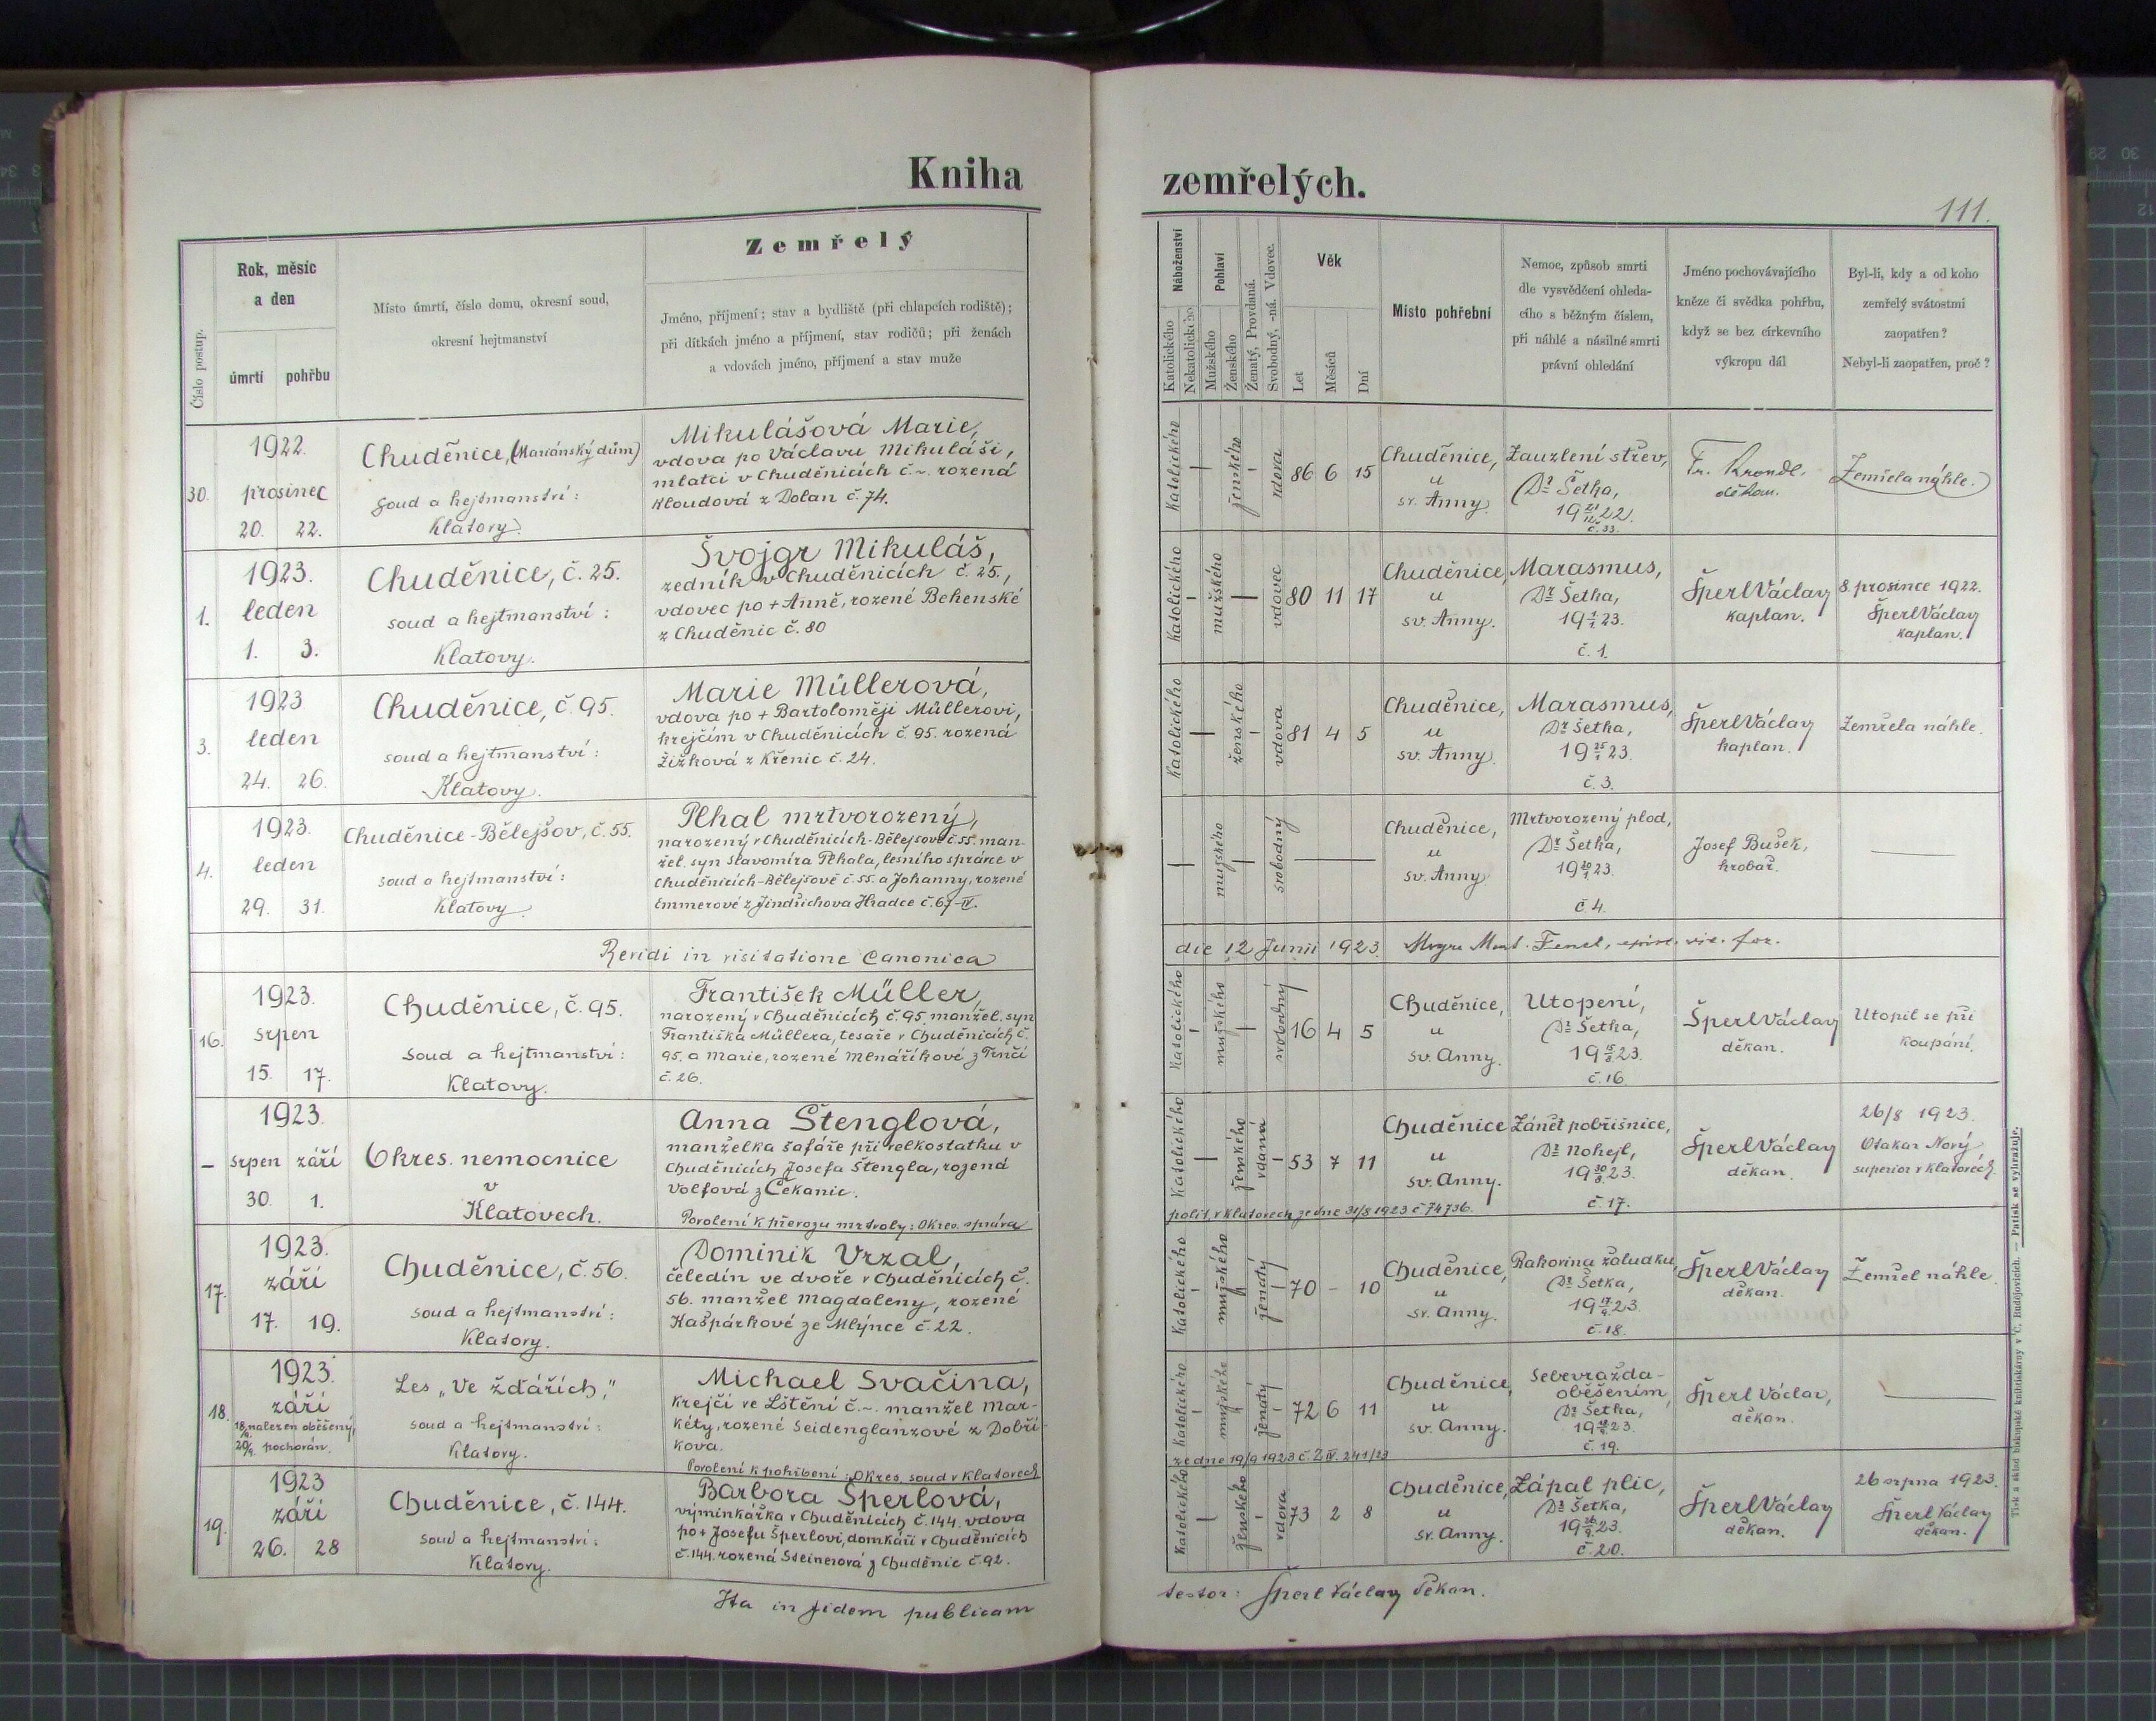 Kniha zemřelých.
111.
Číslo postup.
Rok, měsíc
a den
úmrtí pohřbu
Místo úmrtí, číslo domu, okresní soud,
okresní hejtmanství
Zemřelý
Jméno, příjmení; stav a bydliště (při chlapcích rodiště);
při dítkách jméno a příjmení, stav rodičů; při ženách
a vdovách jméno, příjmení a stav muže
Náboženství
Katolického
Nekatolického
Pohlaví
Mužského
Ženského
Ženatý, Provdaná.
Svobodný, -ná. Vdovec.
Věk
Let
Měsíců
Dní
Místo pohřební
Nemoc, způsob smrti
dle vysvědčení ohleda-
cího s běžným číslem,
při náhlé a násilné smrti
právní ohledání
Jméno pochovávajícího
kněze či svědka pohřbu,
když se bez církevního
výkropu dál
Byl-li, kdy a od koho
zemřelý svátostmi
zaopatřen?
Nebyl-li zaopatřen, proč?
30.
1922.
prosinec
20. 22.
Chuděnice, (Mariánský dům)
soud a hejtmanství:
Klatovy.
Mikulášová Marie,
vdova po Václavu Mikuláši,
mlatci v Chuděnicích č. ~. rozená
Kloudová z Dolan č. 74.
Katolického
ženského
vdova
86 6 15
Chuděnice,
u
sv. Anny.
Zauzlení střev,
Dr. Šetka,
19 21/12 22.
č. 33.
Fr. Krondl.
děkan.
Zemřela náhle.
1.
1923.
leden
1. 3.
Chuděnice, č. 25.
soud a hejtmanství:
Klatovy.
Švojgr Mikuláš,
zedník v Chuděnicích č. 25.,
vdovec po + Anně, rozené Behenské
z Chuděnic č. 80
Katolického
mužského
vdovec
80 11 17
Chuděnice,
u
sv. Anny.
Marasmus,
Dr. Šetka,
19 1/1 23.
č. 1.
Šperl Václav
kaplan.
8. prosince 1922.
Šperl Václav
kaplan.
3.
1923
leden
24. 26.
Chuděnice, č. 95.
soud a hejtmanství:
Klatovy.
Marie Müllerová,
vdova po + Bartoloměji Müllerovi,
krejčím v Chuděnicích č. 95. rozená
Žižková z Křenic č. 24.
Katolického
ženského
vdova
81 4 5
Chuděnice,
u
sv. Anny.
Marasmus,
Dr. Šetka,
19 25/1 23.
č. 3.
Šperl Václav
kaplan.
Zemřela náhle.
4.
1923.
leden
29. 31.
Chuděnice-Bělejšov, č. 55.
soud a hejtmanství:
Klatovy.
Plhal mrtvorozený,
narozený v Chuděnicích-Bělejšově č. 55. man-
žel. syn Slavomíra Plhala, lesního správce v
Chuděnicích-Bělejšově č. 55. a Johanny, rozené
Emmerové z Jindřichova Hradce č. 67-IV.
mužského
svobodný
Chuděnice,
u
sv. Anny.
Mrtvorozený plod,
Dr. Šetka,
19 30/1 23.
č. 4.
Josef Bušek,
hrobař.
Revidi in visitatione Canonica die 12 Junii 1923.
16.
1923.
srpen
15. 17.
Chuděnice, č. 95.
soud a hejtmanství:
Klatovy.
František Müller,
narozený v Chuděnicích č. 95. manžel. syn
Františka Müllera, tesaře v Chuděnicích č.
95. a Marie, rozené Mlnaříkové z Trnčí
č. 26.
Katolického
mužského
svobodný
16 4 5
Chuděnice,
u
sv. Anny.
Utopení,
Dr. Šetka,
19 15/8 23.
č. 16.
Šperl Václav
děkan.
Utopil se při
koupání.
–
1923.
srpen září
30. 1.
Okres. nemocnice
v
Klatovech.
Anna Štenglová,
manželka šafáře při velkostatku v
Chuděnicích Josefa Štengla, rozená
Volfová z Čekanic.
Povolení k převozu mrtvoly: Okres. správa
polit. v Klatovech ze dne 31/8 1923 č. 74736.
Katolického
ženského
vdaná
53 7 11
Chuděnice
u
sv. Anny.
Zánět pobřišnice,
Dr. Nohejl,
19 30/8 23.
č. 17.
Šperl Václav
děkan.
26/8 1923.
Otakar Nový
superior v Klatovech.
17.
1923.
září
17. 19.
Chuděnice, č. 56.
soud a hejtmanství:
Klatovy.
Dominik Vrzal,
čeledín ve dvoře v Chuděnicích č.
56. manžel Magdaleny, rozené
Kašpárkové ze Mlýnce č. 22.
Katolického
mužského
ženatý
70 – 10
Chuděnice,
u
sv. Anny.
Rakovina žaludku,
Dr. Šetka,
19 17/9 23.
č. 18.
Šperl Václav
děkan.
Zemřel náhle.
18.
1923.
září
18/9. nalezen oběšený,
20/9. pochován.
Les „Ve žďářích,"
soud a hejtmanství:
Klatovy.
Michael Svačina,
krejčí ve Lštění č. ~. manžel Mar-
kéty, rozené Seidenglanzové z Dobři-
kova.
Povolení k pohřbení: Okres. soud v Klatovech
ze dne 19/9 1923 č. Z IV. 241/23
Katolického
mužského
ženatý
72 6 11
Chuděnice,
u
sv. Anny.
Sebevražda-
oběšením,
Dr. Šetka,
19 18/9 23.
č. 19.
Šperl Václav,
děkan.
19.
1923
září
26. 28
Chuděnice, č. 144.
soud a hejtmanství:
Klatovy.
Barbora Šperlová,
výminkářka v Chuděnicích č. 144. vdova
po + Josefu Šperlovi, domkáři v Chuděnicích
č. 144. rozená Steinerová z Chuděnic č. 92.
Katolického
ženského
vdova
73 2 8
Chuděnice,
u
sv. Anny.
Zápal plic,
Dr. Šetka,
19 26/9 23.
č. 20.
Šperl Václav
děkan.
26 srpna 1923.
Šperl Václav
děkan.
Ita in fidem publicam testor: Šperl Václav děkan.
Tisk a sklad biskupské knihtiskárny v Č. Budějovicích. — Patisk se vyhražuje.